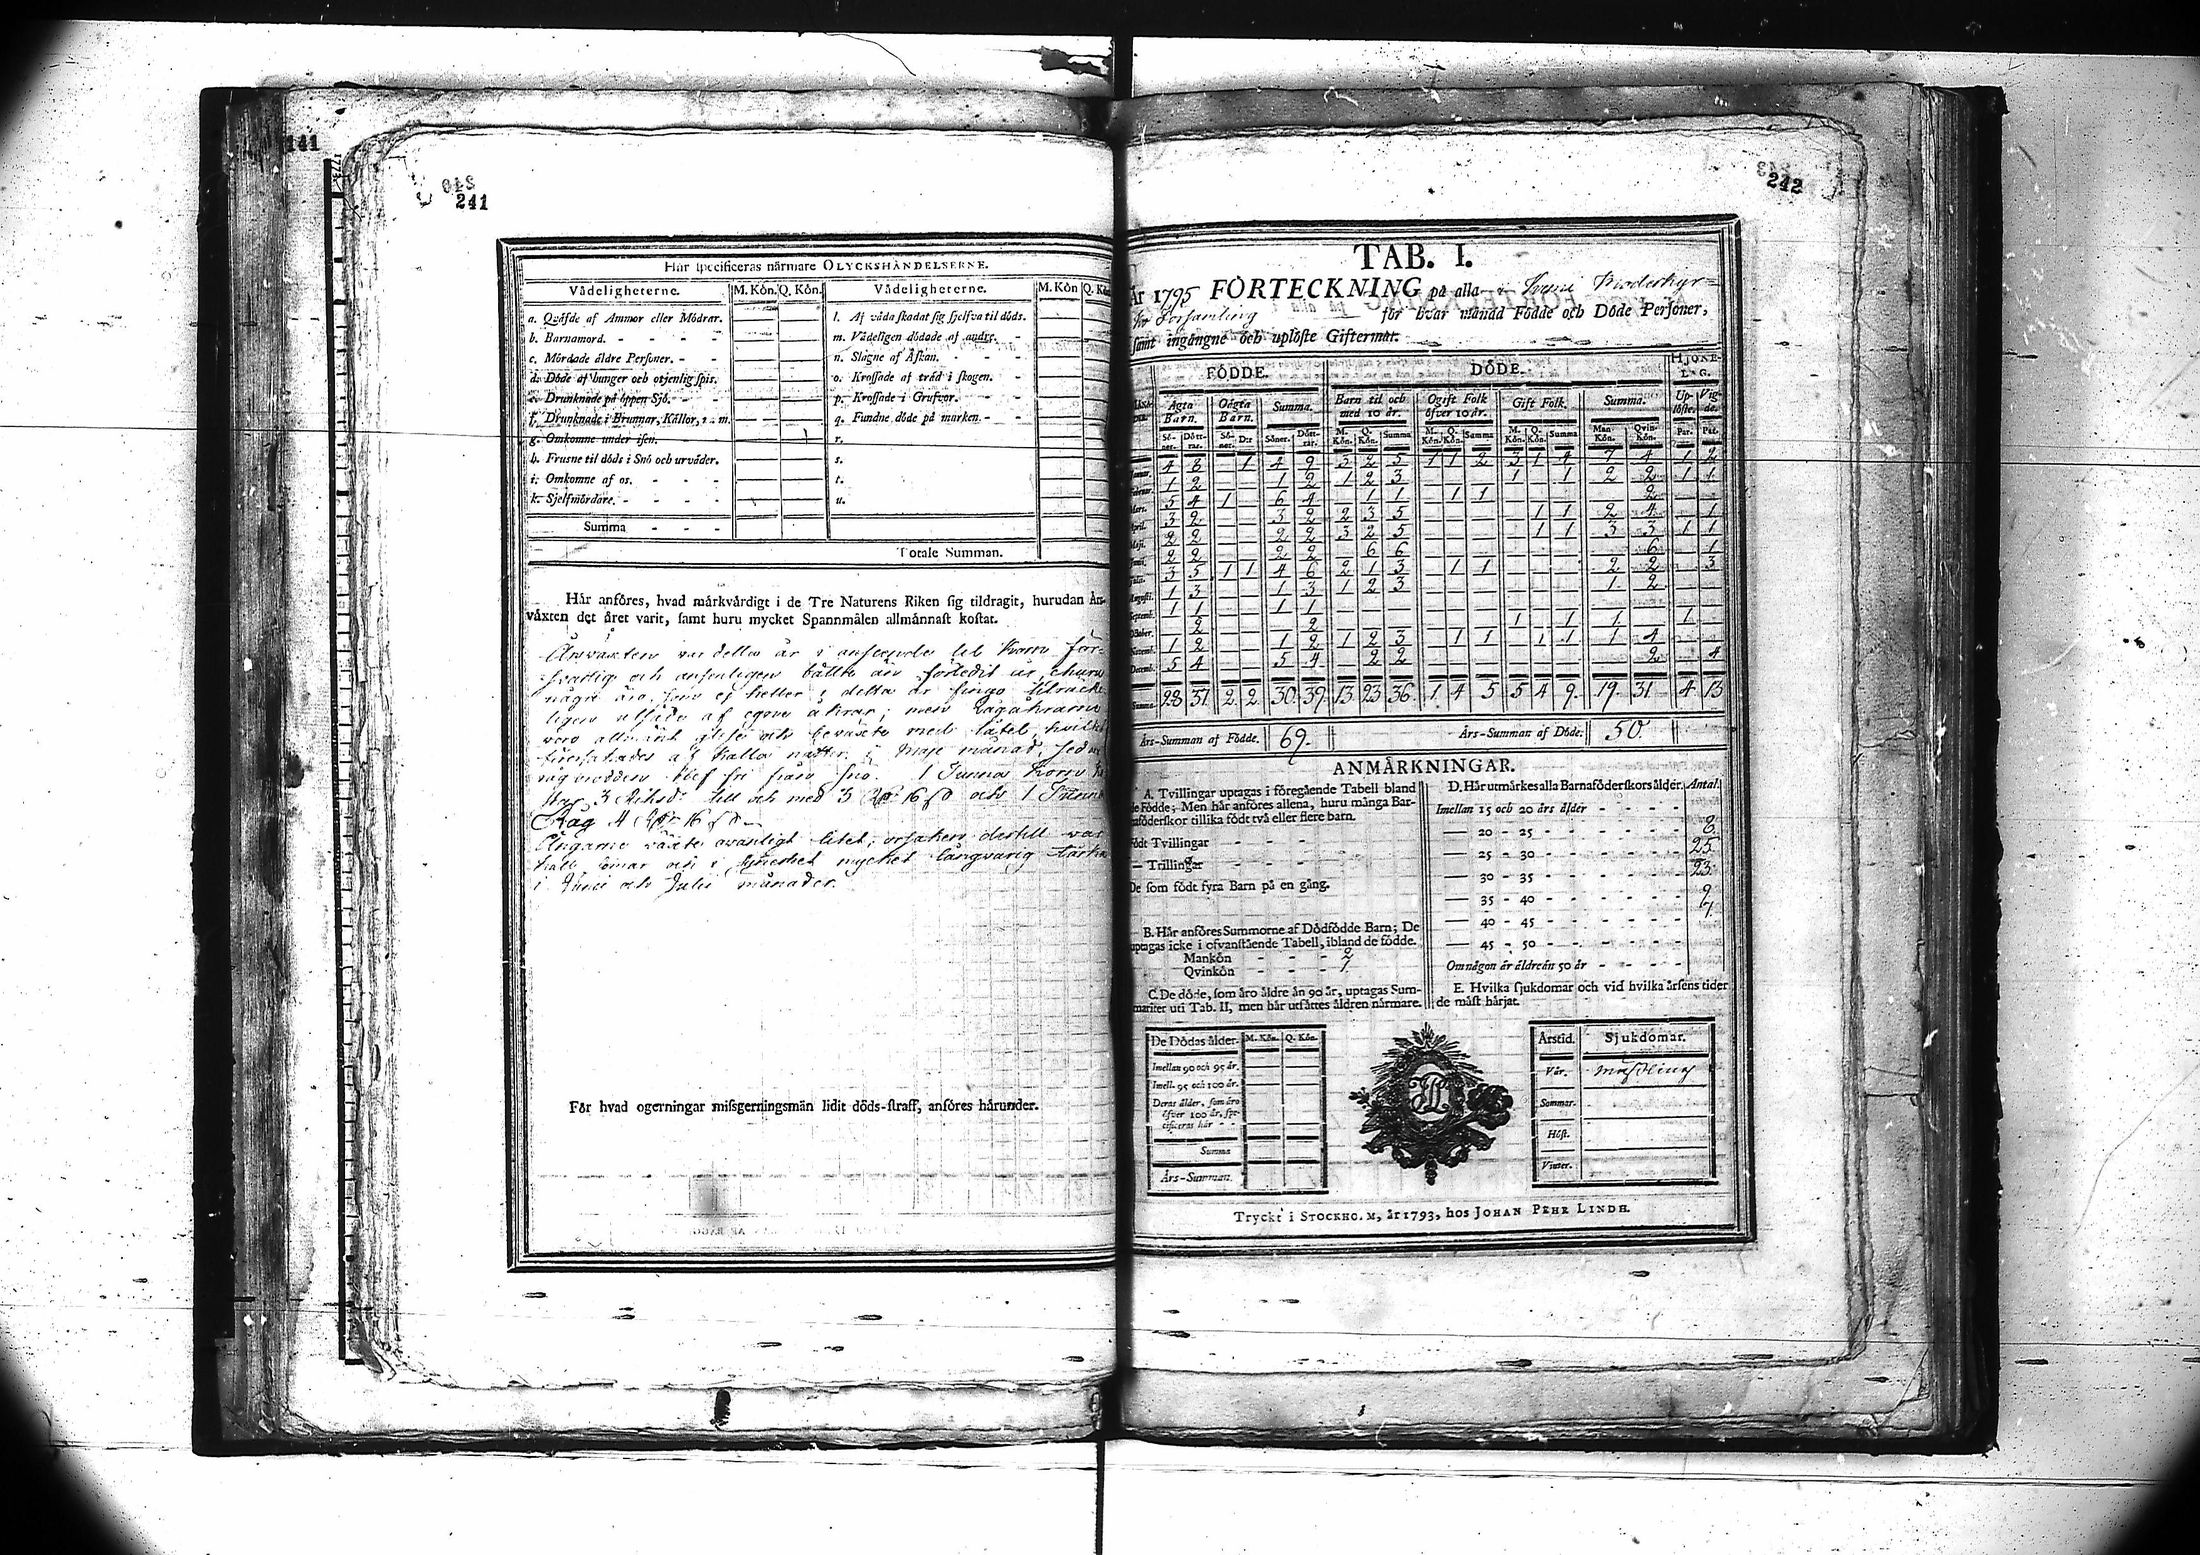 141
241
Här specificeras närmare OLYCKSHÄNDELSERNE.
Vådeligheterne. M. Kön. Q. Kön. Vådeligheterne. M. Kön Q. Kö
a. Qväfde af Ammor eller Mödrar. l. Af våda skadat sig sjelfva til döds.
b. Barnamord. m. Vådeligen dödade af andre.
c. Mördade äldre Personer. n. Slagne af Åskan.
d. Döde af hunger och otjenlig spis. o. Krossade af träd i skogen.
e. Drunknade på öppen Sjö. p. Krossade i Grufvor.
f. Drunknade i Brunnar, Källor, o. m. q. Fundne döde på marken.
g. Omkomne under isen. r.
h. Frusne til döds i Snö och urväder. s.
i. Omkomne af os. t.
k. Sjelfmördare. u.
Summa
Totale Summan.
Här anföres, hvad märkvärdigt i de Tre Naturens Riken sig tildragit, hurudan Års-
växten det året varit, samt huru mycket Spannmålen allmännast kostat.
Årsväxten var detta år i anseende till Korn för-
och ansenligen bättre än förledit år, ehuru
några äro, som ej heller i detta år
af egna åkrar; men Rågåkrarne
voro allmänt glese och beväxte med
af kalla nätter i Maji månad, sedan
blef fri från snö. 1 Tunna Korn
3 Riksd. till och med 3 Rd 16 s och 1 Tunna
Råg 4 Rd 16 s
Ängarne växte ovanligt litet, orsaken dertill var
och i synnerhet mycket långvarig
i Junii och Julii månader.
För hvad ogerningar missgerningsmän lidit döds-straff, anföres härunder.
242
TAB. I.
År 1795 FÖRTECKNING på alla i Moderkyr-
ko Församling för hvar månad Födde och Döde Personer,
samt ingångne och uplöste Giftermål.
FÖDDE. DÖDE. HJONE-LAG.
Ägta Barn. Oägta Barn. Summa. Barn til och med 10 år. Ogift Folk öfver 10 år. Gift Folk. Summa. Up-löste. Vig-de.
Sö-ner. Dött-rar. Sö-ner. D:r Söner. Dött-rar. M. Kön. Q. Kön. Summa M. Kön. Q. Kön. Summa M. Kön. Q. Kön. Summa Man Kön. Qvin-Kön. Par. Par.
Januar. 4 8 1 4 9 3 2 5 1 1 2 3 1 4 7 4 1 2
Februar. 1 2 1 2 1 2 3 1 1 2 2 1 1
Mars. 5 4 1 6 4 1 1 1 1 2
April. 3 2 3 2 2 3 5 1 1 2 4 1
Maji. 2 2 2 2 3 2 5 1 1 3 3 1 1
Junii. 2 2 2 2 6 6 6 1
Julii. 3 5 1 1 4 6 2 1 3 1 1 2 2 3
Augusti. 1 3 1 3 1 2 3 1 2
Septemb. 1 1 1 1
October. 2 2 1 1 1 1
Novemb. 1 2 1 2 1 2 3 1 1 1 1 1 4
Decemb. 5 4 5 4 2 2 2 4
Summa 28 37 2. 2. 30. 39. 13. 23 36. 1. 4 5 5 4 9. 19. 31. 4. 13
Års-Summan af Födde. 69. Års-Summan af Döde. 50.
ANMÄRKNINGAR.
A. Tvillingar uptagas i föregående Tabell bland
de Födde; Men här anföres allena, huru många Bar-
naföderskor tillika födt två eller flere barn.
Födt Tvillingar
— Trillingar
De som födt fyra Barn på en gång.
B. Här anföres Summorne af Dödfödde Barn; De
uptagas icke i ofvanstående Tabell, ibland de födde.
Mankön 2
Qvinkön 1.
C. De döde, som äro äldre än 90 år, uptagas Sum-
mariter uti Tab. II, men här utsättes åldren närmare.
D. Här utmärkes alla Barnaföderskors ålder. Antal.
Imellan 15 och 20 års ålder
— 20 - 25 8.
— 25 - 30 25.
— 30 - 35 23.
— 35 - 40 9
— 40 - 45 7.
— 45 - 50
Om någon är äldre än 50 år
E. Hvilka sjukdomar och vid hvilka årsens tider
de mäst härjat.
De Dödas ålder. M. Kön. Q. Kön.
Imellan 90 och 95 år.
Imell. 95 och 100 år.
Deras ålder, som äro
öfver 100 år, spe-
cificeras här
Summa
Års-Summan.
Årstid. Sjukdomar.
Vår. Mässling
Sommar.
Höst.
Vinter.
Tryckt i STOCKHOLM, år 1793, hos JOHAN PEHR LINDH.